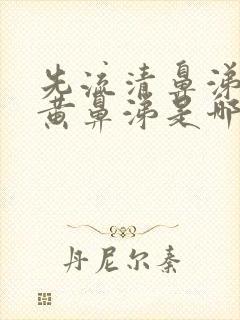 先流清鼻涕
黄鼻涕是哪
丹尼尔秦